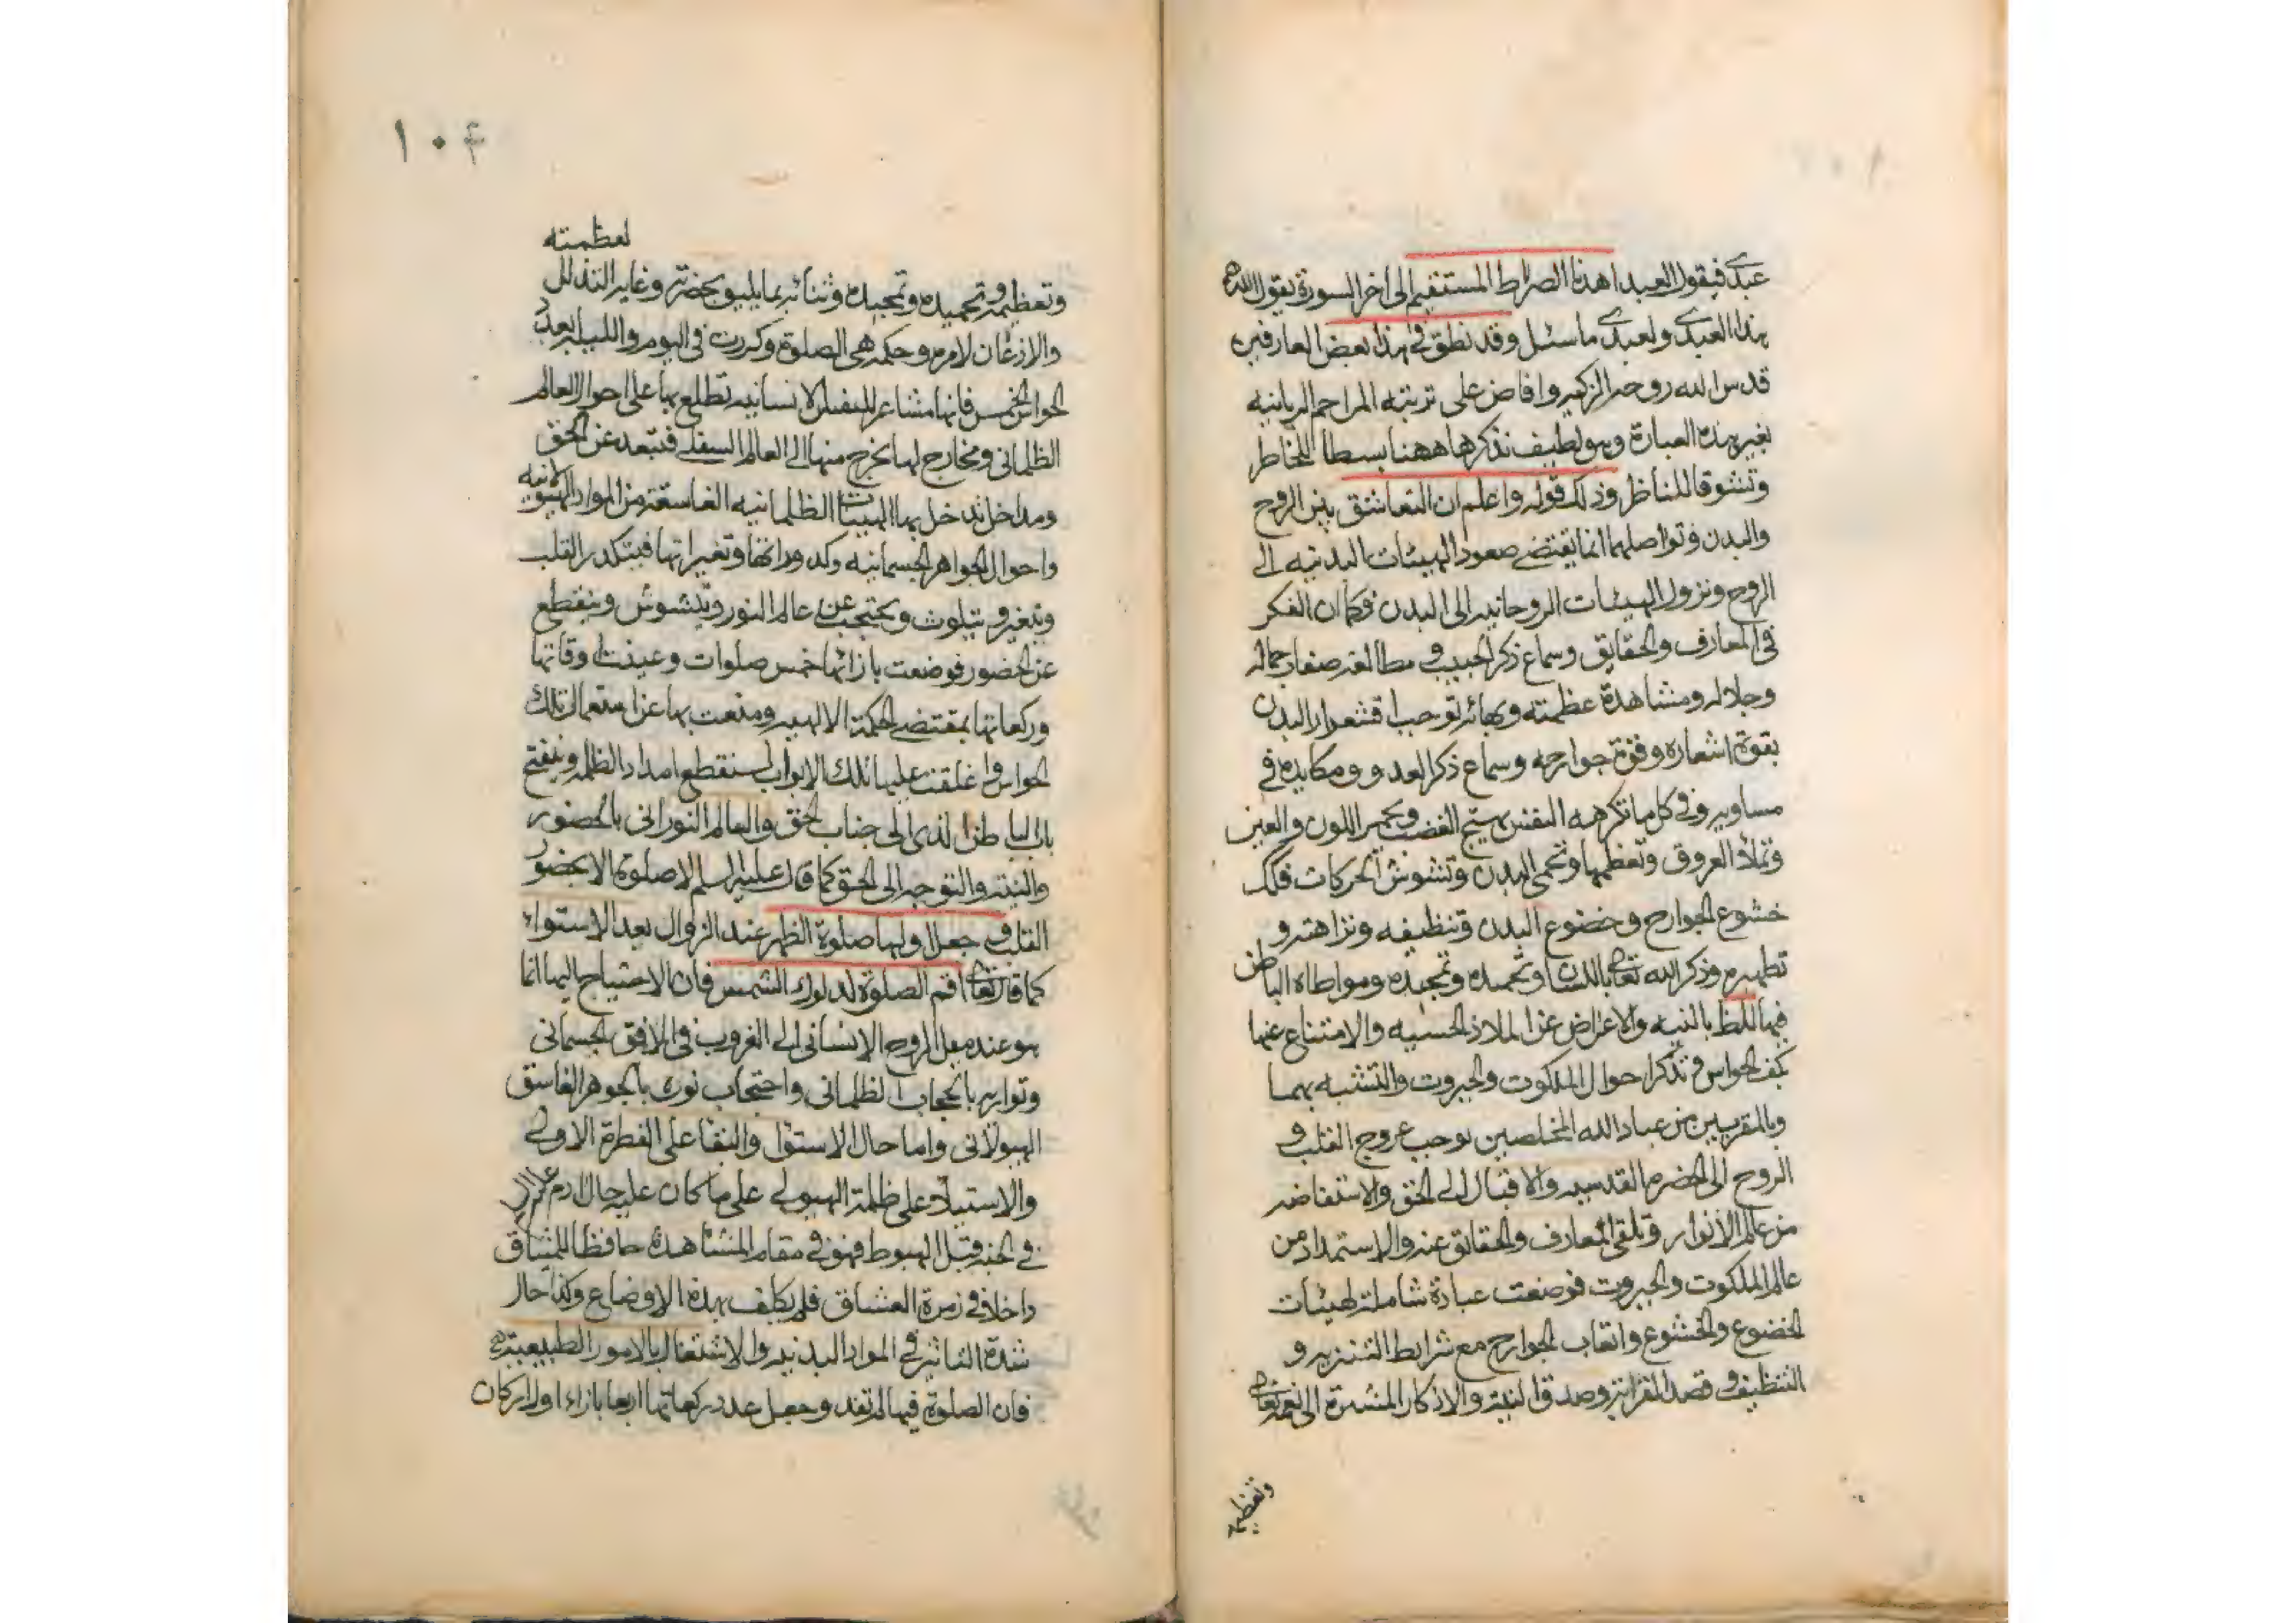 عبدى فيقول العبد اهدنا الصراط المستقيم الى اخر السورة يقول الله
هذا لعبدى ولعبدى ما سئل وقد نطق فى هذا بعض العارفين
قدس الله روحه الزكيه وافاض على تربته المراحم الربانيه
بغير هذه العبارة وهو لطيف نذكرها ههنا بسطا للخاطر
وتشوقا للناظر وذلك قوله واعلم ان التعاشق بين الروح
والبدن وتواصلهما انما يقتضى صعود الهيئات البدنيه الى
الروح ونزول الهيئات الروحانيه الى البدن فكما ان الفكر
فى المعارف والحقايق وسماع ذكر الحبيب و مطالعه صفات جماله
وجلاله ومشاهدة عظمته وبهائه توجب اقشعرار البدن
بقوة اشعاره وفترة جوارحه وسماع ذكر العدو ومكايده فى
مساويه وفى كل ما تكرهه النفس يهيج الغضب ويحمر اللون والعين
وتملأ العروق وتعظمها وتحمى البدن وتشوش الحركات فكك
خشوع الجوارح وخضوع البدن وتنظيفه ونزاهته و
تطهيره وذكر الله تعالى باللسان وتحميده وتمجيده ومواطاة الباطن
فيها للظ بالنيه والاعراض عن الملاذ الحسيه والامتناع عنها
بكف الحواس وتذكر احوال الملكوت والجبروت والتشبه بهما
وبالمقربين من عباد الله المخلصين يوجب عروج القلب و
الروح الى الحضرة القدسيه والاقبال الى الحق والاستفاضه
من عالم الانوار وتلقى المعارف والحقايق عنه والاستمداد من
عالم الملكوت والجبروت فوضعت عبادة شاملة لهيئات
الخضوع والخشوع واتعاب الجوارح مع شرايط التنزيه و
التنظيف وقصد القرابة وصدق النية والاذكار المشيرة الى نعمه تعالى
وتعظيمه
١٠۴
لعظمته
وتعظيمه وتحميده وتمجيده وثنائه بما يليق بحضرته وغاية التذلل
والاذعان لامره وحكمه هى الصلوة وكررت فى اليوم والليله بعدد
الحواس الخمس فانها مشاعر للنفس الانسانيه تطلع بها على احوال العالم
الظلمانى ومخارج لها تخرج منها الى العالم السفلى فتبعد عن الحق
ومداخل تدخل بها الهيئات الظلمانيه الغاسقة من المواد الهيولانيه
واحوال الجواهر الجسمانيه وكدوراتها وتغيراتها فيتكدر القلب
وتتغير و يتلوث ويحتجب عن عالم النور ويتشوش وينقطع
عن الحضور فوضعت بازائها خمس صلوات وعينت اوقاتها
وركعاتها بمقتضى الحكمة الالهيه ومنعت بها عن استعمال تلك
الحواس واغلقت عليها تلك الابواب لينقطع امداد الظلمه وينفتح
باب الباطن الذى الى جناب الحق والعالم النورانى بالحضور
والنيته والتوجه الى الحق كما قال عليه السلم لا صلوة الا بحضور
القلب و جعل اولها صلوة الظهر عند الزوال بعد الاستواء
كما قال تعالى اقم الصلوة لدلوك الشمس فان الاحتياج اليها انما
هو عند ميل الروح الانسانى الى الغروب فى الافق الجسمانى
وتواريه بالحجاب الظلمانى واحتجاب نوره بالجوهر الغاسق
الهيولانى واما حال الاستوا والبقا على الفطرة الاولى
والاستيلاء على ظلمة الهيولى على ما كان عليه حال ادم
فى الجنه قبل الهبوط فهو فى مقام المشاهدة حافظا للميثاق
داخلا فى زمرة العشاق فلم يكلف بهذه الاوضاع وكذا حال
شدة التاثير فى المواد البدنيه والاشتغال بالامور الطبيعيته
فان الصلوة فيها لم تفد وجعل عدد ركعاتها اربعا بازاء اول اركان